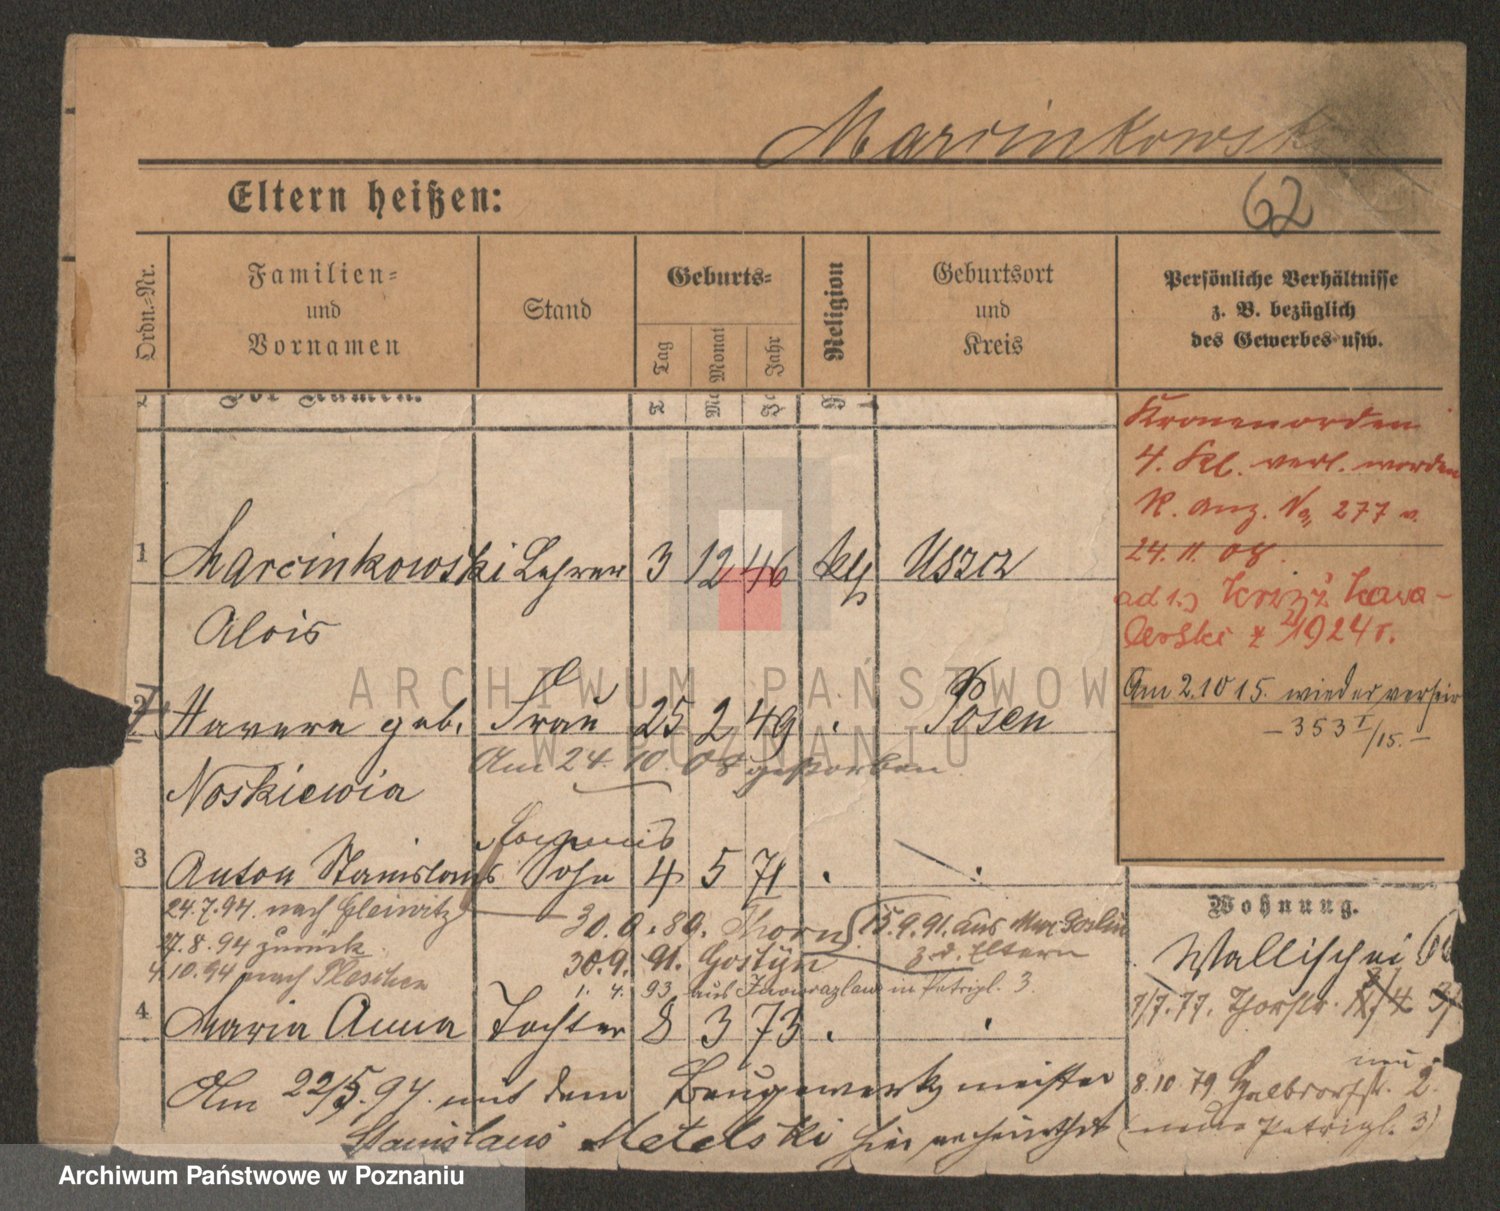 Marcinkowski
62
Eltern heißen:
Ordn.-Nr.
Familien-
und
Vornamen
Stand
Geburts-
Tag
Monat
Jahr
Religion
Geburtsort
und
Kreis
Persönliche Verhältnisse
z. B. bezüglich
des Gewerbes usw.
Kronenorden
4. Kl. verl. worden
R. Anz. No 277 v.
24.11.08.
ad 1.) Krzyż Kawa-
lerski z 1924 r.
Am 2.10 15. wieder
- 353 I/15. -
1 Marcinkowski Lehrer 3 12 46 kth Uszcz
Alois
2 geb. Frau 25 2 49 Posen
Am 24. 10. 08 gestorben
3 Anton Stanislaus Sohn 4 5 71
24.7.94. nach Gleiwitz 30.9.89. Thorn 15.9.91. aus Mur. Goslin
17.8.94 zurück 30.9. 91. Gostyn z. d. Eltern
4.10.94 nach Pleschen
1. 4. 93 aus Inowrazlaw in Petrigl. 3.
4 Maria Anna Tochter 8 3 73
Am 22/5.97. mit dem Baugewerksmeister
Stanislaus Metelski hier verheirathet
Wohnung.
Wallischei
7/7.77. Thorstr.
neu
8.10.79 Halbdorfstr. 2.
(neue Petrigl. 3)
ARCHIWUM PAŃSTWOWE
W POZNANIU
Archiwum Państwowe w Poznaniu